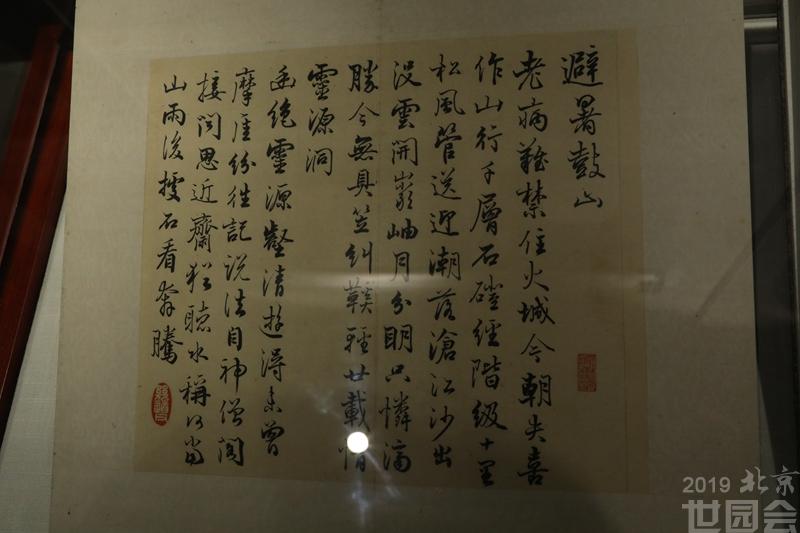 避暑鼓山
老病難禁住火城今朝失喜
作山行千層石磴經階級十里
松風管送迎潮落滄江沙出
沒雲開巖岫月分明只憐濟
勝今無具笠糾鞵輕廿載情
靈源洞
幽絕靈源壑清遊得未曾
摩崖紛往記說法自神僧閣
接聞思近齋猶聽水稱何當
山雨後據石看奔騰
2019 北京
世园会